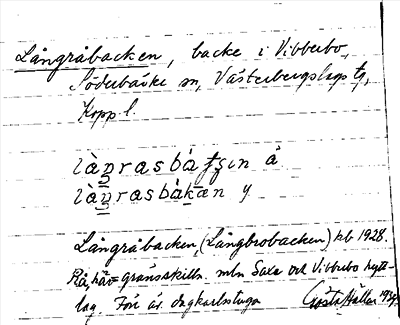 Långråbacken, backe i Vibberbo,
Söderbärke sn, Västerbergslags tg,
Kopp. l.
làŋrasbàʈʂın ä
làŋrasbàkæn y
Långråbacken, (Långbrobacken) kb 1928.
Rå, här = gränsskilln. mln Saxe och Vibberbo hytt-
lag. Förr är dagkarlsstuga Gösta Häller 1934